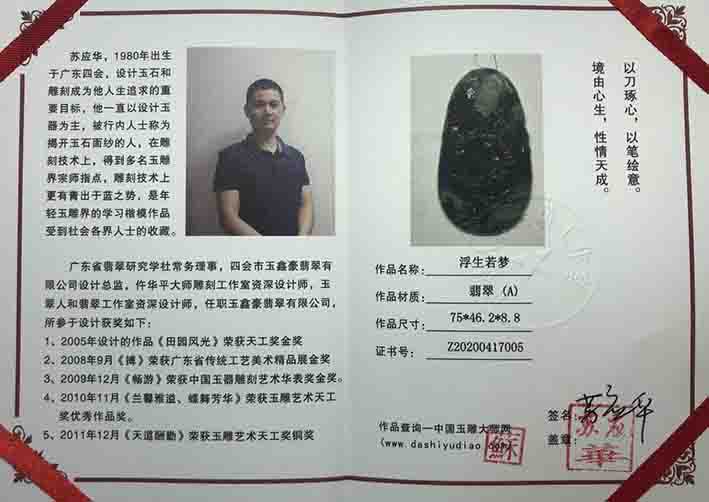 苏应华，1980年出生
于广东四会，设计玉石和
雕刻成为他人生追求的重
要目标，他一直以设计玉
器为主，被行内人士称为
揭开玉石面纱的人，在雕
刻技术上，得到多名玉雕
界宗师指点，雕刻技术上
更有青出于蓝之势，是年
轻玉雕界的学习楷模作品
受到社会各界人士的收藏。
广东省翡翠研究学社常务理事，四会市玉鑫豪翡翠有
限公司设计总监，仵华平大师雕刻工作室资深设计师，玉
翠人和翡翠工作室资深设计师，任职玉鑫豪翡翠有限公司，
所参于设计获奖如下：
1、2005年设计的作品《田园风光》荣获天工奖金奖
2、2008年9月《搏》荣获广东省传统工艺美术精品展金奖
3、2009年12月《畅游》荣获中国玉器雕刻艺术华表奖金奖。
4、2010年11月《兰馨雅溢、蝶舞芳华》荣获玉雕艺术天工
奖优秀作品奖。
5、2011年12月《天道酬勤》荣获玉雕艺术天工奖铜奖
以刀琢心，以笔绘意。
境由心生，性情天成。
作品名称：浮生若梦
作品材质：翡翠（A）
作品尺寸：75*46.2*8.8
证书号：Z20200417005
作品查询—中国玉雕大师网
(www.dashiyudiao.com)
蘇
签名：苏应华
盖章：